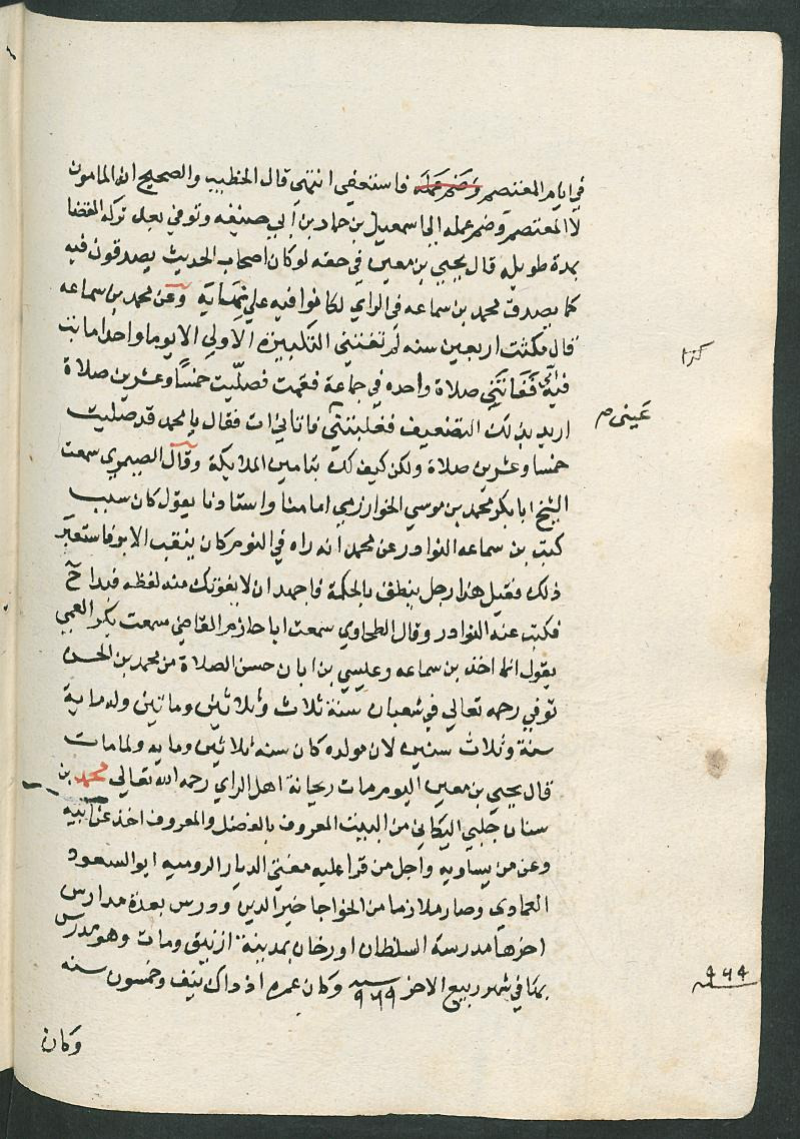 في ايام المعتصم وضم عمله فاستعفي انتهي قال الخطيب والصحيح انه المامون
لا المعتصم وضم عمله الي اسمعيل بن حماد بن ابي حنيفه وتوفي بعد تركه القضا
بمدة طويله قال يحيي بن معين في حقه لو كان اصحاب الحديث يصدقون فيه
كما يصدق محمد بن سماعه في الراي لكانوا فيه علي نهاية وعن محمد بن سماعه
قال مكثت اربعين سنه لم تفتني التكبيرة الاولي الا يوما واحدا ماتت
فيه امي ففاتتني صلاة واحده في جماعة فقمت فصليت خمسا وعشرين صلاة
كذا
اريد بذلك التضعيف فغلبتني فاتاني ات فقال يا محمد قد صليت
عيني م
خمسا وعشرين صلاة ولكن كيف لك بتامين الملايكة وقال الصيمري سمعت
الشيخ ابا بكر محمد بن موسي الخوارزمي امامنا واستادنا يقول كان سبب
كتب بن سماعه النوادر عن محمد انه راه في النوم كان ينقب الابر فاستعبر
ذلك فقيل هذا رجل ينطق بالحكمة فاجهد ان لا يفوتك منه لفظه فبدا ح
فكتب عنه النوادر وقال الطحاوي سمعت ابا حازم القاضي سمعت بكر العمي
يقول انما اخذ بن سماعه وعيسي بن ابان حسن الصلاة من محمد بن الحسن
توفي رحمه تعالي في شعبان سنة ثلاث وثلاثين ومائتين وله ماية
سنة وثلاث سنين لان مولده كان سنه ثلاثين ومايه ولما مات
قال يحيي بن معين اليوم مات ريحانة اهل الراي رحمه الله تعالي محمد بن
سنان جلبي اليكاني من البيت المعروف بالفضل والمعروف اخذ عن ابيه
وعن من يساويه واجل من قرا عليه مفتي الديار الروميه ابو السعود
العمادي وصار ملازما من الخواجا خير الدين ودرس بعدة مدارس
اخرها مدرسة السلطان اورخان بمدينة ازنيق ومات وهو مدرس
بها في شهر ربيع الاخر سنه ٩٦٩ وكان عمره اذ ذاك نيف وخمسون سنه
٩٦٩
وكان